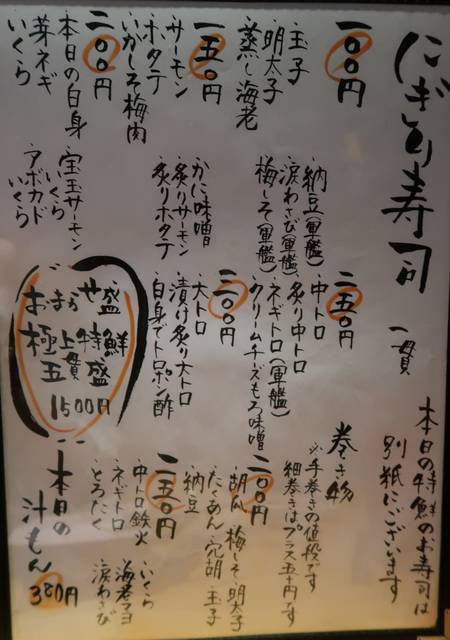 にぎり寿司 一貫
本日の特鮮のお寿司は
別紙にございます
一〇〇円
・玉子
・明太子
・蒸し海老
・納豆(軍艦)
・涙わさび(軍艦)
・梅しそ(軍艦)
一五〇円
・サーモン
・ホタテ
・いかしそ梅肉
・かに味噌
・炙りサーモン
・炙りホタテ
二〇〇円
・本日の白身
・芽ネギ
・いくら
・宝玉サーモンいくら
・アボカドいくら
二五〇円
・中トロ
・炙り中トロ
・ネギトロ(軍艦)
・クリームチーズもろ味噌
三〇〇円
・大トロ
・漬け炙り大トロ
・白身でトロポン酢
おまかせ盛
極上特鮮
五貫盛
1500円
巻き物
※手巻きの値段です
細巻きはプラス五十円です
二〇〇円
・胡瓜 ・梅しそ ・明太子
・たくあん ・穴胡 ・玉子
・納豆
二五〇円
・中トロ鉄火 ・いくら
・ネギトロ ・海老マヨ
・とろたく ・涙わさび
本日の汁もん 380円